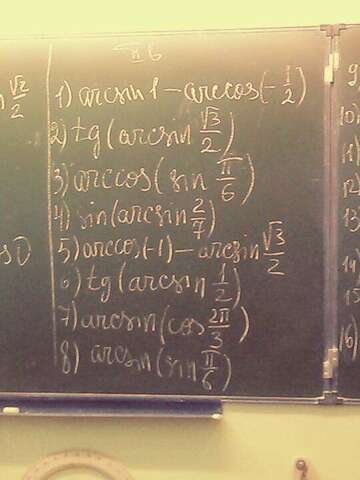 √2/2
1) arcsin 1 − arccos(−1/2)
2) tg(arcsin √3/2)
3) arccos(sin π/6)
4) sin(arcsin 2/7)
5) arccos(−1) − arcsin √3/2
6) tg(arcsin 1/2)
7) arcsin(cos 2π/3)
8) arcsin(sin π/6)
9
10
11)
12)
13
14)
15
16)